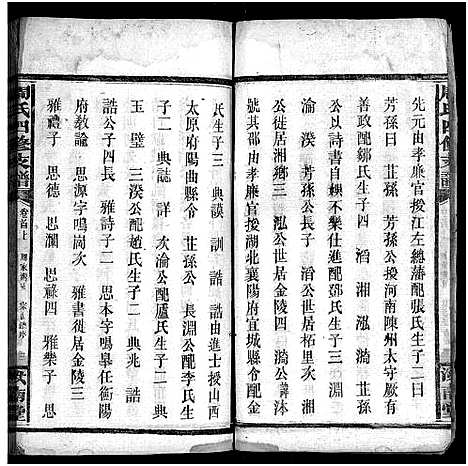 先元由孝廉官授江左總藩配張氏生子二
芳孫 日 芷孫 芳孫公授河南陳州太守厥有
善政配鄒氏生子四 湘 湓 漪
公以詩書自娛不樂仕進配鄧氏生子三 淵
瀹 湀 芳孫公長子 滔公世居柘里次湘
公徙居湘鄉 三泓公世居金陵 四漪公 譁沐
號其郡由孝廉官授湖北襄陽府宜城縣令配金
氏生子三 典謨 訓 誥 誥由進士授山西
太原府陽曲縣令 芷孫公 長淵公配李氏生
子二 典誌 詳 次瀹公配盧氏生子二 典
玉 璧 三湀公配趙氏生子二 典兆 誥
誥公子四 長 雅言 思本字鳴皋任衡陽
府教諭 思源字鳴崗次 雅書徙居金陵三
雅禮子 思德 思瀾 思祿四 雅樂子 思
周氏四修支譜
卷首上
汝南堂
周氏四修支譜
汝南堂